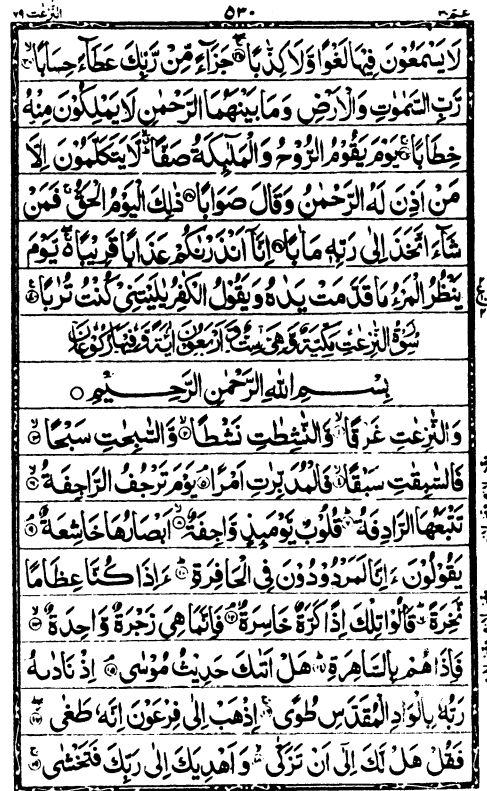 عم ۳۰ ۵۳۰ النزعت ۷۹
لَا يَسْمَعُوْنَ فِيْهَا لَغْوًا وَّلَا كِذّٰبًا ﴿۳۵﴾ جَزَآءً مِّنْ رَّبِّكَ عَطَآءً حِسَابًا ﴿۳۶﴾
رَّبِّ السَّمٰوٰتِ وَالْاَرْضِ وَمَا بَيْنَهُمَا الرَّحْمٰنِ لَا يَمْلِكُوْنَ مِنْهُ
خِطَابًا ﴿۳۷﴾ يَوْمَ يَقُوْمُ الرُّوْحُ وَالْمَلٰٓئِكَةُ صَفًّا ۙ لَّا يَتَكَلَّمُوْنَ اِلَّا
مَنْ اَذِنَ لَهُ الرَّحْمٰنُ وَقَالَ صَوَابًا ﴿۳۸﴾ ذٰلِكَ الْيَوْمُ الْحَقُّ ۚ فَمَنْ
شَآءَ اتَّخَذَ اِلٰى رَبِّهٖ مَاٰبًا ﴿۳۹﴾ اِنَّاۤ اَنْذَرْنٰكُمْ عَذَابًا قَرِيْبًا ۚۖ يَّوْمَ
يَنْظُرُ الْمَرْءُ مَا قَدَّمَتْ يَدٰهُ وَيَقُوْلُ الْكٰفِرُ يٰلَيْتَنِيْ كُنْتُ تُرٰبًا ﴿۴۰﴾
سُوْرَةُ النّٰزِعٰتِ مَكِّيَّةٌ وَّهِيَ سِتٌّ وَّاَرْبَعُوْنَ اٰيَةً وَّفِيْهَا رُكُوْعَانِ
بِسْمِ اللّٰهِ الرَّحْمٰنِ الرَّحِيْمِ ○
وَالنّٰزِعٰتِ غَرْقًا ﴿۱﴾ وَّالنّٰشِطٰتِ نَشْطًا ﴿۲﴾ وَّالسّٰبِحٰتِ سَبْحًا ﴿۳﴾
فَالسّٰبِقٰتِ سَبْقًا ﴿۴﴾ فَالْمُدَبِّرٰتِ اَمْرًا ﴿۵﴾ يَوْمَ تَرْجُفُ الرَّاجِفَةُ ﴿۶﴾
تَتْبَعُهَا الرَّادِفَةُ ﴿۷﴾ قُلُوْبٌ يَّوْمَئِذٍ وَّاجِفَةٌ ﴿۸﴾ اَبْصَارُهَا خَاشِعَةٌ ﴿۹﴾
يَقُوْلُوْنَ ءَاِنَّا لَمَرْدُوْدُوْنَ فِي الْحَافِرَةِ ﴿۱۰﴾ ءَاِذَا كُنَّا عِظَامًا
نَّخِرَةً ﴿۱۱﴾ قَالُوْا تِلْكَ اِذًا كَرَّةٌ خَاسِرَةٌ ﴿۱۲﴾ فَاِنَّمَا هِيَ زَجْرَةٌ وَّاحِدَةٌ ﴿۱۳﴾
فَاِذَا هُمْ بِالسَّاهِرَةِ ﴿۱۴﴾ هَلْ اَتٰىكَ حَدِيْثُ مُوْسٰى ﴿۱۵﴾ اِذْ نَادٰىهُ
رَبُّهٗ بِالْوَادِ الْمُقَدَّسِ طُوًى ﴿۱۶﴾ اِذْهَبْ اِلٰى فِرْعَوْنَ اِنَّهٗ طَغٰى ﴿۱۷﴾
فَقُلْ هَلْ لَّكَ اِلٰۤى اَنْ تَزَكّٰى ﴿۱۸﴾ وَاَهْدِيَكَ اِلٰى رَبِّكَ فَتَخْشٰى ﴿۱۹﴾